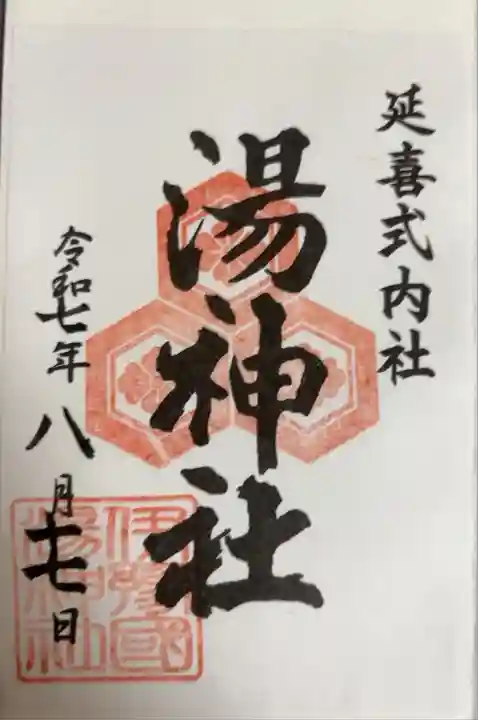 延喜式内社
湯神社
令和七年八月十七日
伊豫國
湯神社